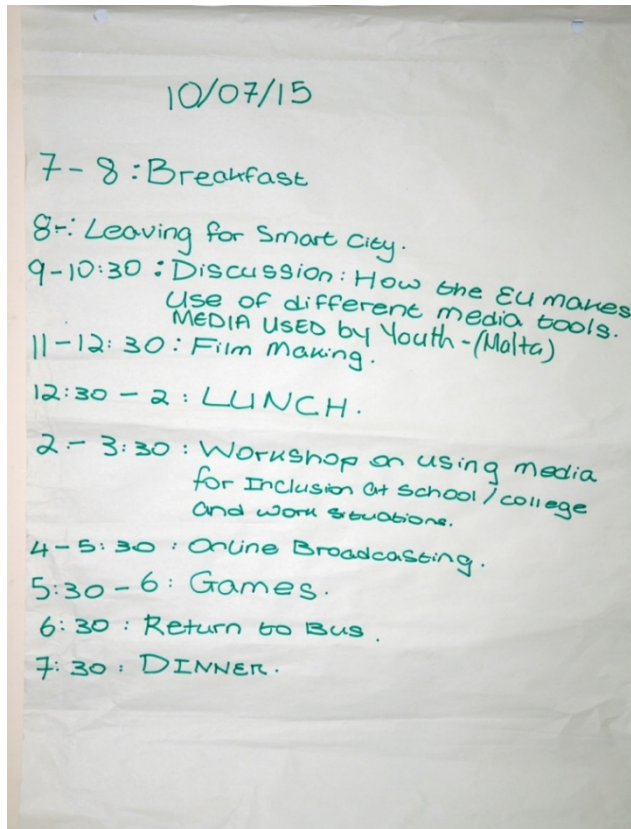 10/07/15
7-8 : Breakfast
8-: Leaving for Smart City.
9-10:30 : Discussion: How the EU makes
Use of different media tools.
MEDIA USED by Youth-(Malta)
11-12:30 : Film Making.
12:30 - 2 : LUNCH.
2 - 3:30 : Workshop on using media
for Inclusion at school/college
and work situations.
4-5:30 : Online Broadcasting.
5:30-6: Games.
6:30 : Return to Bus.
7:30 : DINNER.